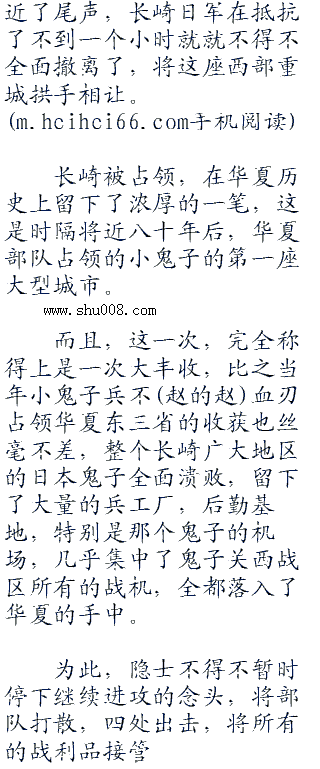 近了尾声，长崎日军在抵抗
了不到一个小时就就不得不
全面撤离了，将这座西部重
城拱手相让。
(m.hcihci66.com手机阅读)
长崎被占领，在华夏历
史上留下了浓厚的一笔，这
是时隔将近八十年后，华夏
部队占领的小鬼子的第一座
大型城市。
www.shu008.com
而且，这一次，完全称
得上是一次大丰收，比之当
年小鬼子兵不(赵的赵)血刃
占领华夏东三省的收获也丝
毫不差，整个长崎广大地区
的日本鬼子全面溃败，留下
了大量的兵工厂，后勤基
地，特别是那个鬼子的机
场，几乎集中了鬼子关西战
区所有的战机，全都落入了
华夏的手中。
为此，隐士不得不暂时
停下继续进攻的念头，将部
队打散，四处出击，将所有
的战利品接管